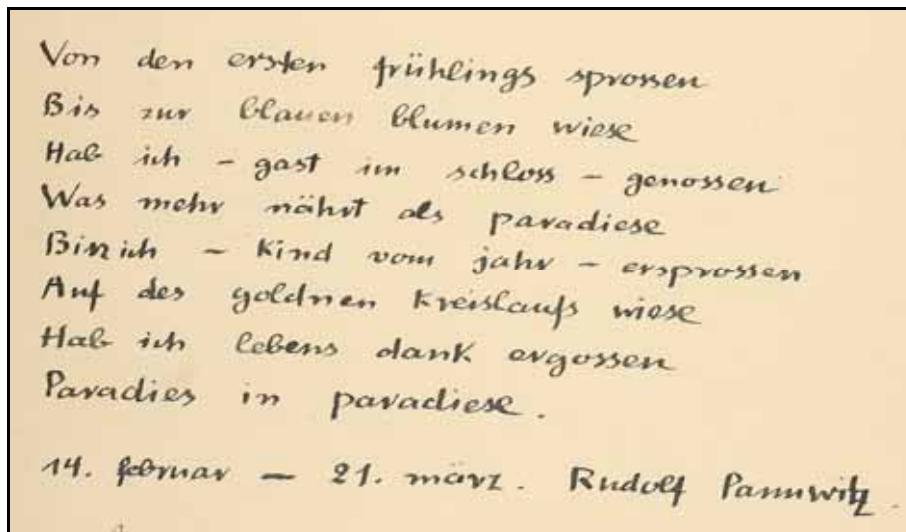 Von den ersten frühlings sprossen
Bis zur blauen blumen wiese
Hab ich – gast im schloss – genossen
Was mehr nährt als paradiese
Bin ich – kind vom jahr – ersprossen
Auf des goldnen kreislaufs wiese
Hab ich lebens dank ergossen
Paradies in paradiese.
14. februar – 21. märz. Rudolf Pannwitz.